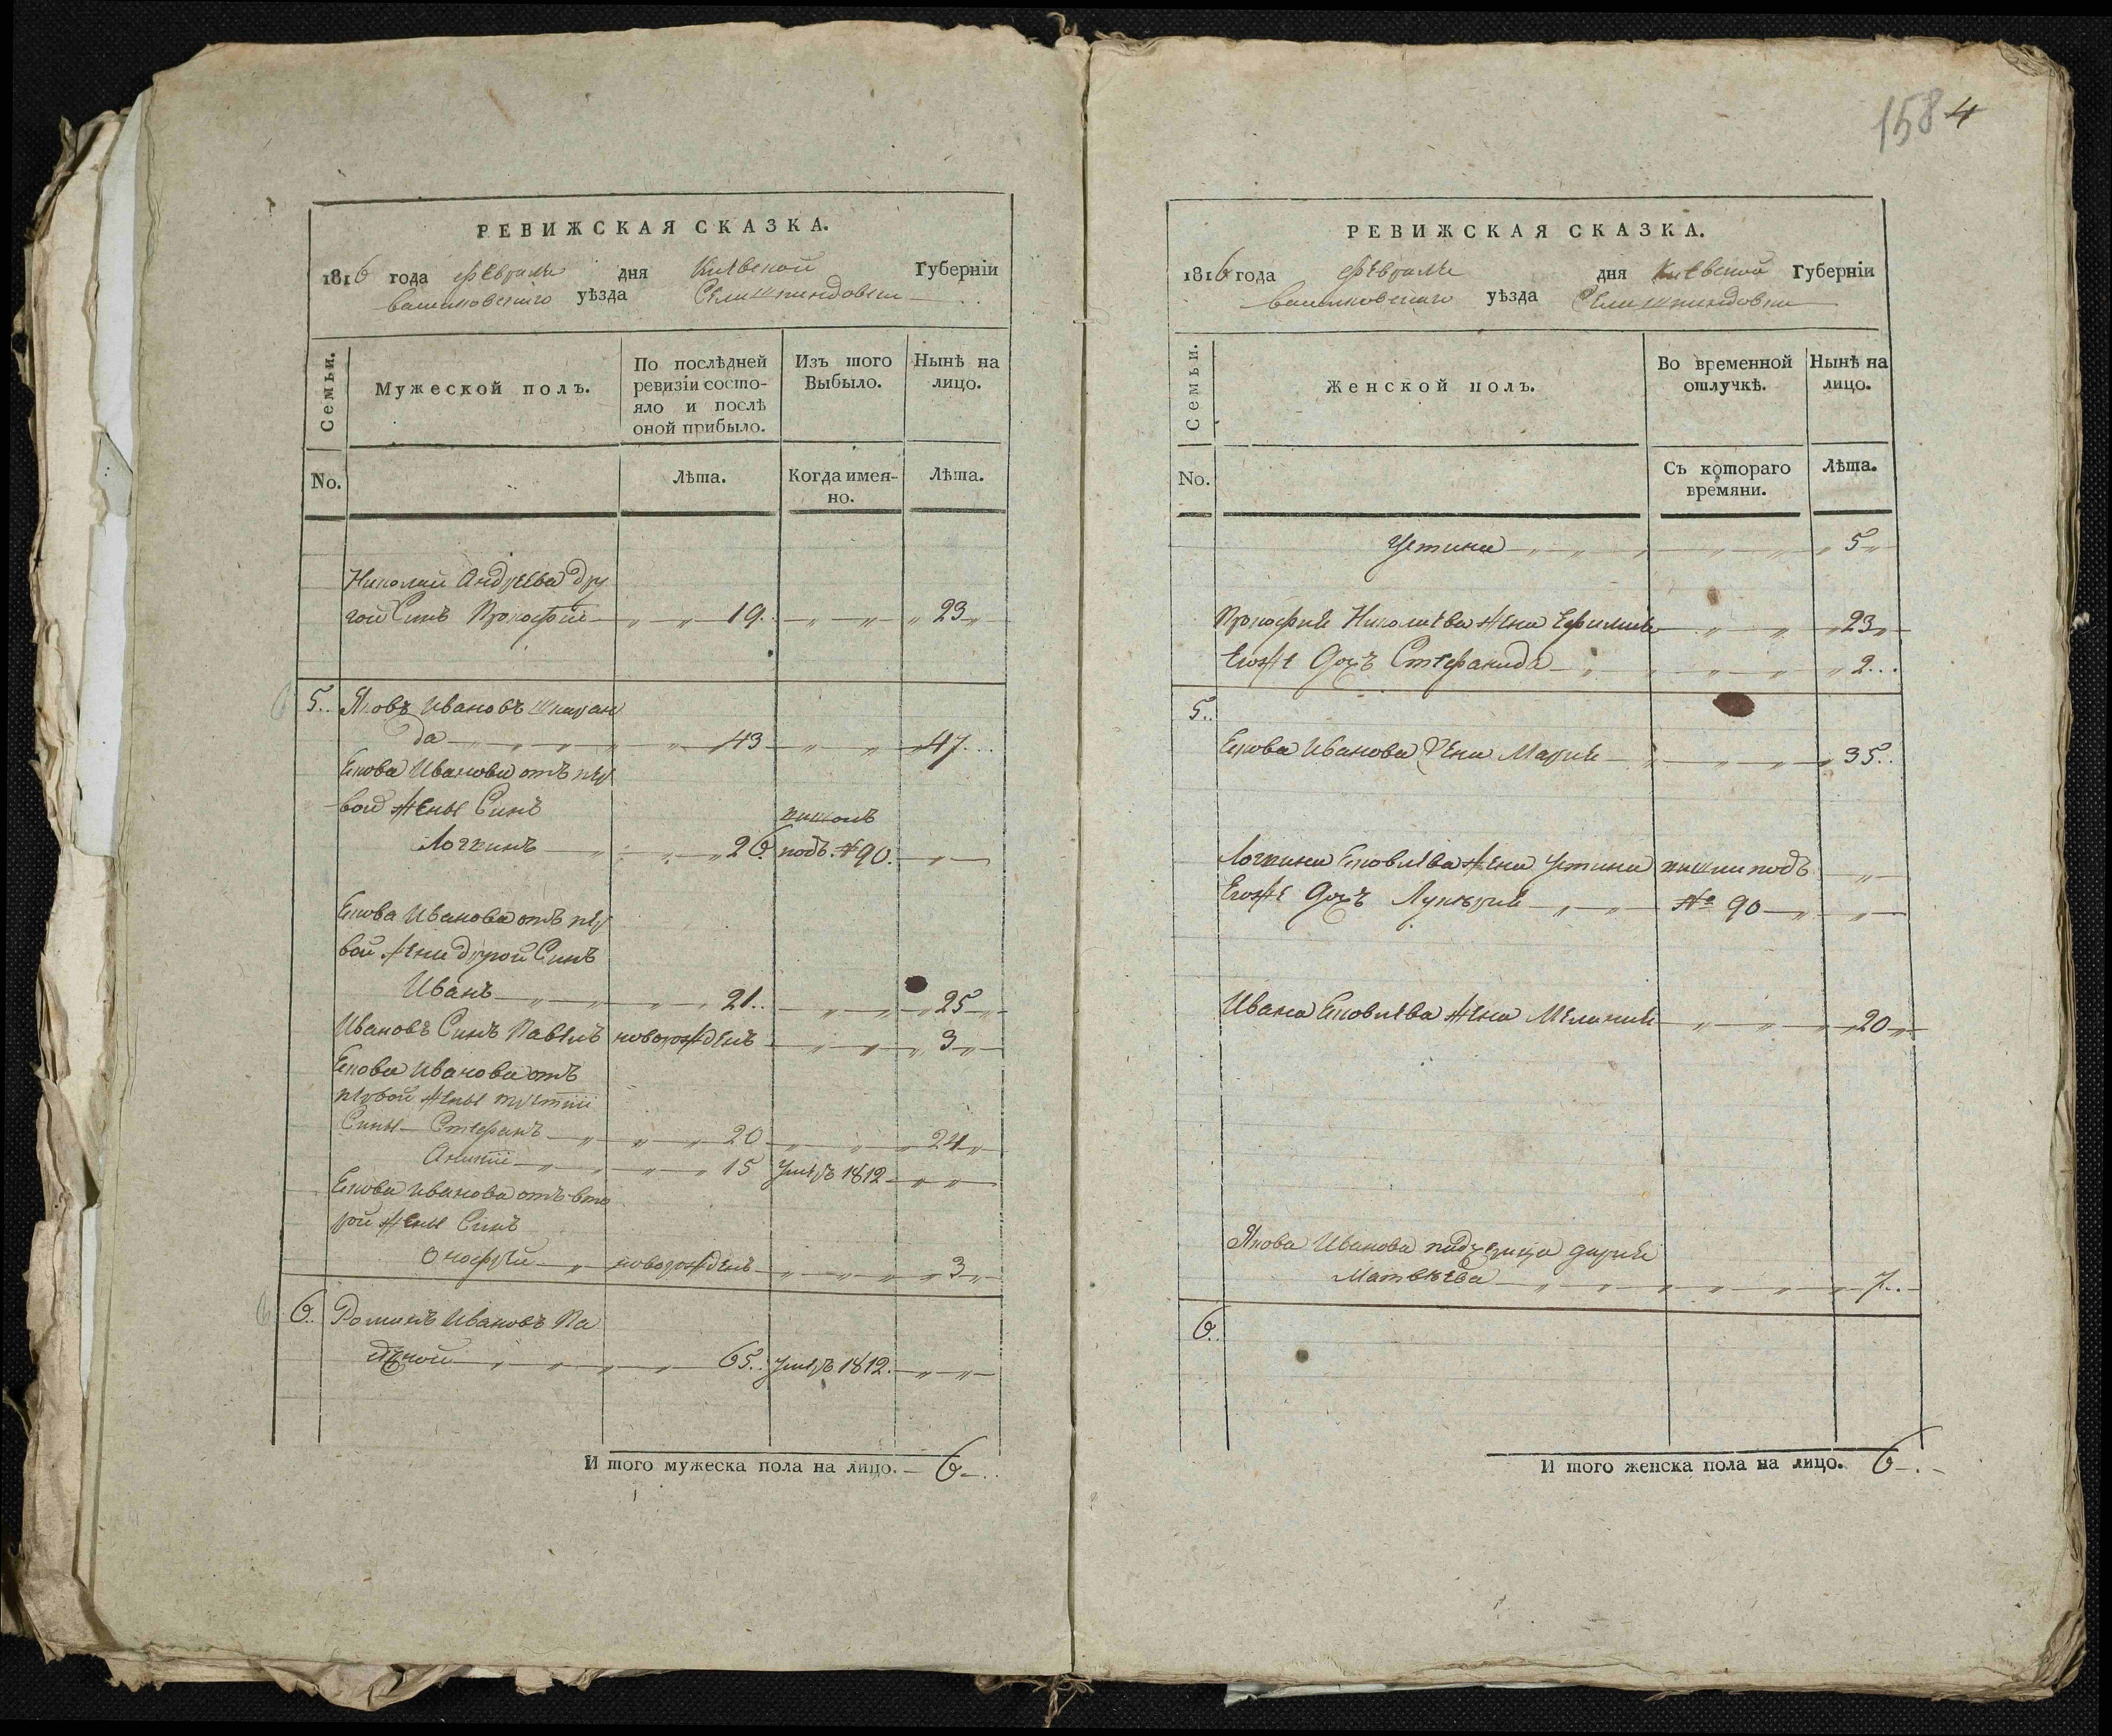 158 4
РЕВИЖСКАЯ СКАЗКА.
1816 года Февраля дня Киевской Губерніи
васильковского уѣзда
Семьи.
Мужеской полъ.
По послѣдней ревизіи состо-
яло и послѣ
оной прибыло.
Изъ того
Выбыло.
Нынѣ на
лицо.
No.
Лѣта.
Когда имен-
но.
Лѣта.
Николай Андреева дру
гой Синъ Прокофій 19. 23
5.. Яковъ Ивановъ
да 43 47
Екова Иванова отъ пер
вой жены Синъ
Логвинъ 26. подъ № 90.
Екова Иванова отъ пер
вой жени другой Синъ
Иванъ 21.. 25
Ивановъ Синъ Павелъ новорожденъ 3
Екова Иванова отъ
первой жены третіи
Сины Стефанъ 20 24
Аникіи 15 умеръ 1812
Екова Иванова отъ вто
рой жены Синъ
Онофрей новорожденъ 3
6.. Романъ Ивановъ
65.. умеръ 1812.
И того мужеска пола на лицо. 6
РЕВИЖСКАЯ СКАЗКА.
1816 года Февраля дня Киевской Губерніи
васильковского уѣзда
Семьи.
Женской полъ.
Во временной
отлучкѣ.
Нынѣ на
лицо.
No.
Съ котораго
времяни.
Лѣта.
Устина 5
Прокофия Николаева жена 23
Егоже Дочъ Стефанида 2...
5..
Екова Иванова жена Мария 35..
Логвина Ековлева жена Устина подъ
Егоже Дочъ Лукерия № 90
Ивана Ековлева жена Мелания 20
Якова Иванова падчерица дария
Матвеева 7..
6.
И того женска пола на лицо. 6